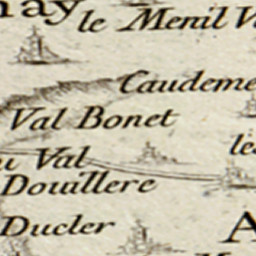 nay
le Menil V
Caudeme
Val Bonet
le
u Val
Douillere
Ducler
A